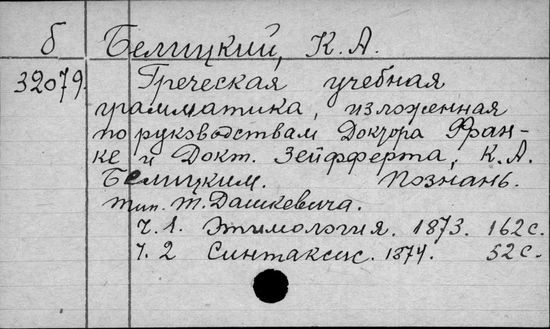 б Белицкий, К. А.
32079. Греческая учебная
грамматика, изложенная
по руководствам Доктора Фран-
ке и Докт. Зейфферта, К. А.
Белицким. Познань.
тип. Т. Дашкевича.
Ч. 1. Этимология. 1873. 162 с.
Ч. 2 Синтаксис. 1874. 52 с.